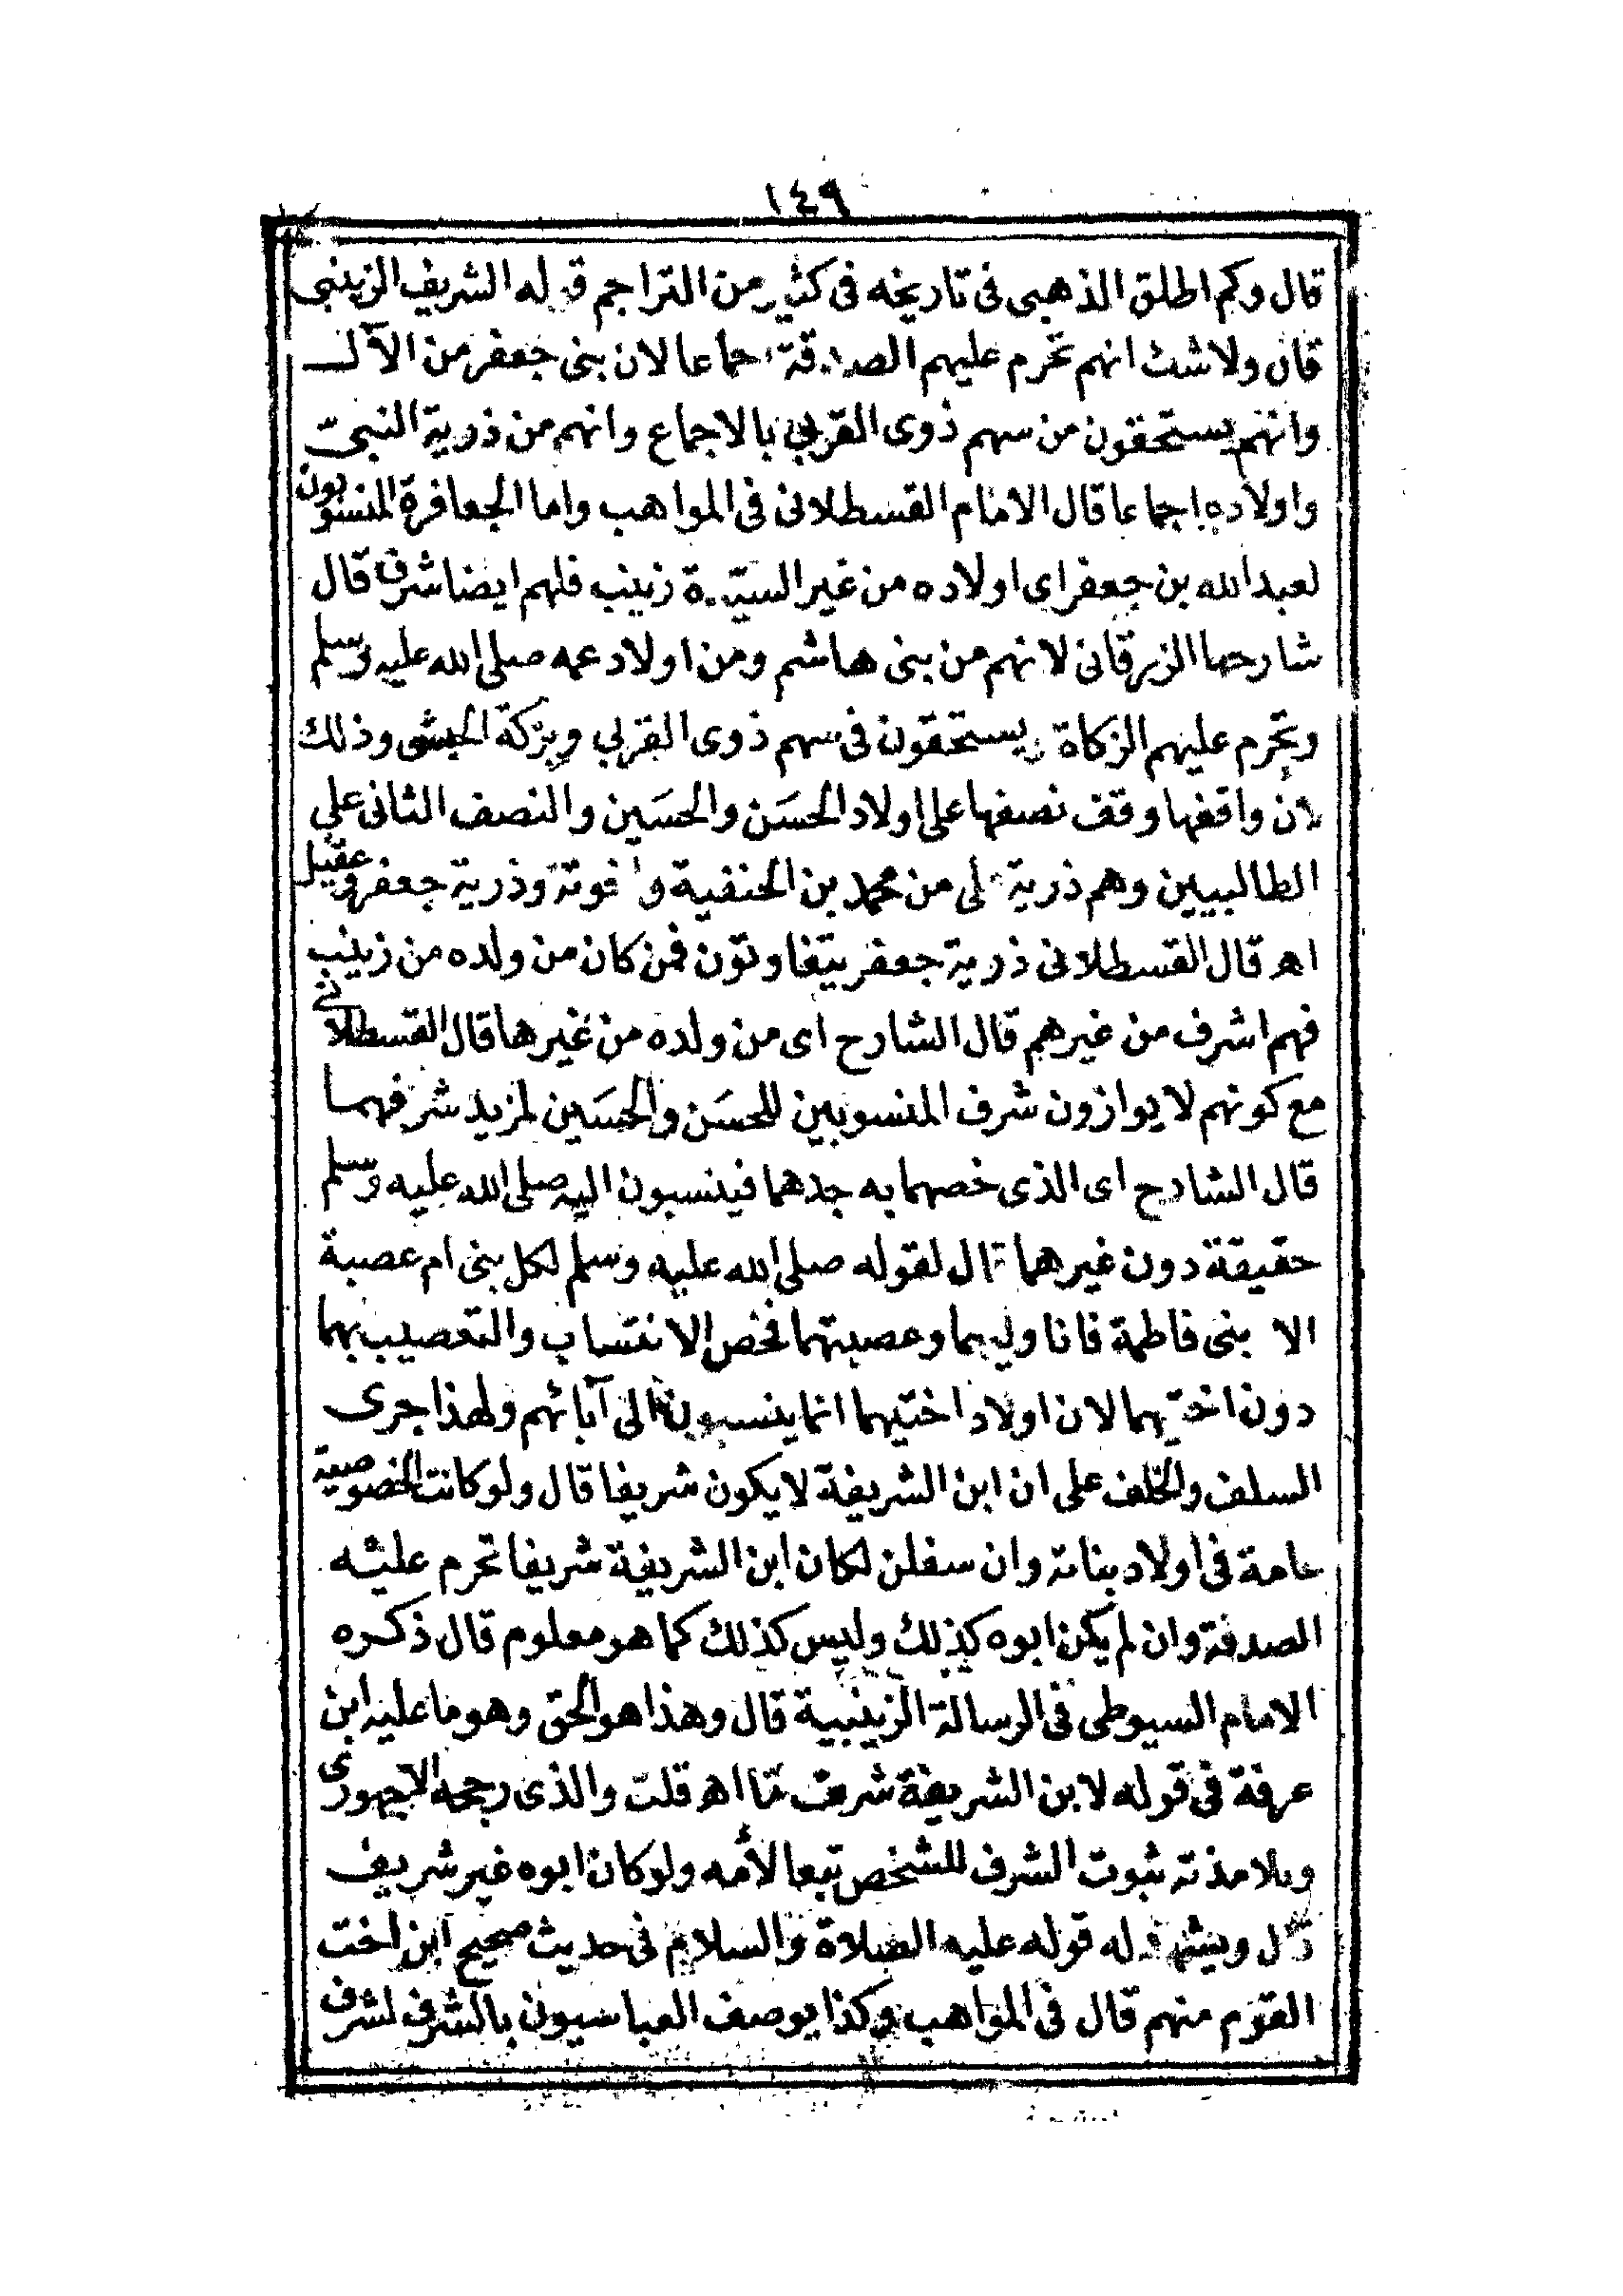 ١٤٩
قال وكم اطلق الذهبى فى تاريخه فى كثير من التراجم قوله الشريف الزينبى
قال ولا شك انهم تحرم عليهم الصدقة اجماعا لان بنى جعفر من الآل
وانهم يستحقون من سهم ذوى القربى بالاجماع وانهم من ذرية النبى
واولاده اجماعا قال الامام القسطلانى فى المواهب واما الجعافرة المنسوبون
لعبد الله بن جعفر اى اولاده من غير السيدة زينب فلهم ايضا شرف قال
شارحها الزرقانى لانهم من بنى هاشم ومن اولاد عمه صلى الله عليه وسلم
وتحرم عليهم الزكاة ويستحقون فى سهم ذوى القربى وبركة الحبش وذلك
لان واقفها وقف نصفها على اولاد الحسَن والحسَين والنصف الثانى على
الطالبيين وهم ذرية على من محمد بن الحنفية واخوته وذرية جعفر وعقيل
اهـ قال القسطلانى ذرية جعفر يتفاوتون فمن كان من ولده من زينب
فهم اشرف من غيرهم قال الشارح اى من ولده من غيرها قال القسطلانى
مع كونهم لا يوازون شرف المنسوبين للحسَن والحسَين لمزيد شرفهما
قال الشارح اى الذى خصهما به جدهما فينسبون اليه صلى الله عليه وسلم
حقيقة دون غيرهما قال لقوله صلى الله عليه وسلم لكل بنى ام عصبة
الا بنى فاطمة فانا وليهما وعصبتهما فخص الانتساب والتعصيب بهما
دون اختيهما لان اولاد اختيهما انما ينسبون الى آبائهم ولهذا جرى
السلف والخلف على ان ابن الشريفة لا يكون شريفا قال ولو كانت الخصوصية
عامة فى اولاد بناته وان سفلن لكان ابن الشريفة شريفا تحرم عليه
الصدقة وان لم يكن ابوه كذلك وليس كذلك كما هو معلوم قال ذكره
الامام السيوطى فى الرسالة الزينبية قال وهذا هو الحق وهو ما عليه ابن
عرفة فى قوله لابن الشريفة شرف ما اهـ قلت والذى رجحه الاجهورى
وتلامذته ثبوت الشرف للشخص تبعا لأمه ولو كان ابوه غير شريف
قال ويشهد له قوله عليه الصلاة والسلام فى حديث صحيح ابن اخت
القوم منهم قال فى المواهب وكذا يوصف العباسيون بالشرف لشرف